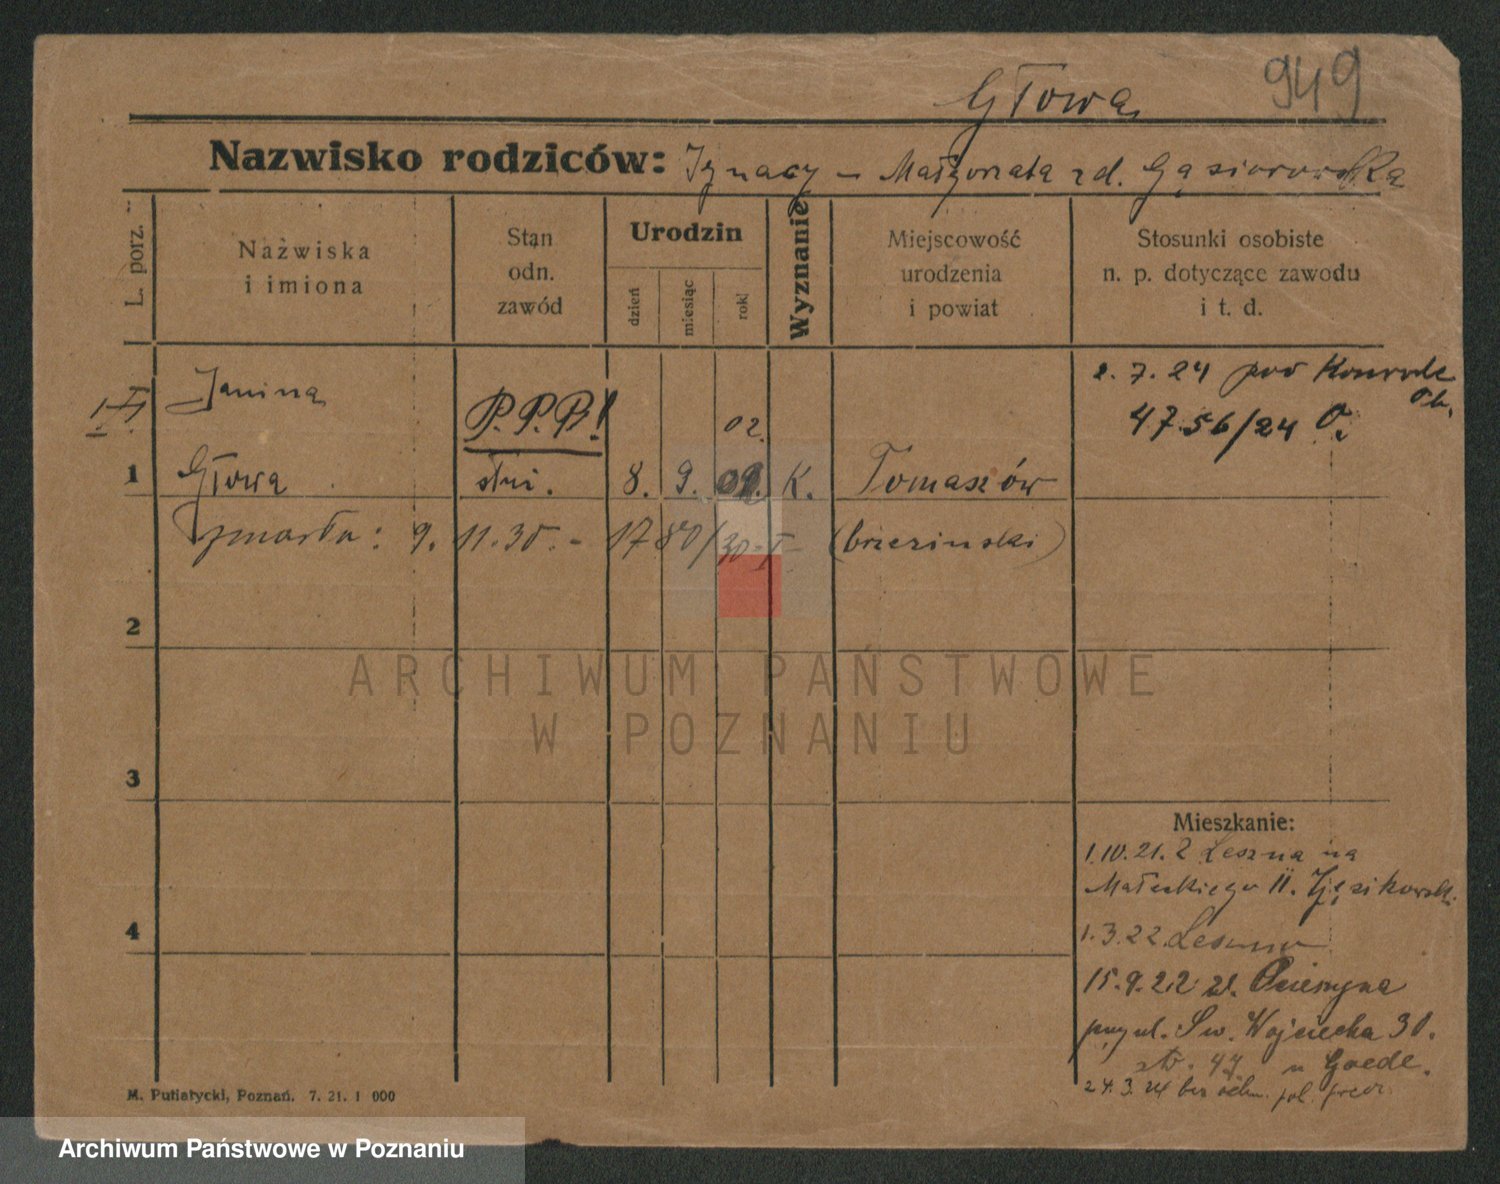 949
Głowa
Nazwisko rodziców: Ignacy – Małgorzata zd. Gąsiorowska
L. porz.
Nazwiska i imiona
Stan odn. zawód
Urodzin
dzień
miesiąc
rok
Wyznanie
Miejscowość urodzenia i powiat
Stosunki osobiste n. p. dotyczące zawodu i t. d.
Janina
P.P.P.!
02.
2.7.24 pod
4756/24
1 Głowa 8. 9. K. Tomaszów
zmarła: 9. 11. 30. - 1780/30 (brzeziński)
2
3
4
Mieszkanie:
1.10.21. z Leszna na
Małeckiego II.
1.3.22. Leszno
15.9.22 z
przy ul. Św. Wojciecha 30.
u Goede.
24.3.24 bez
M. Putiatycki, Poznań. 7. 21. 1 000
ARCHIWUM PAŃSTWOWE
W POZNANIU
Archiwum Państwowe w Poznaniu